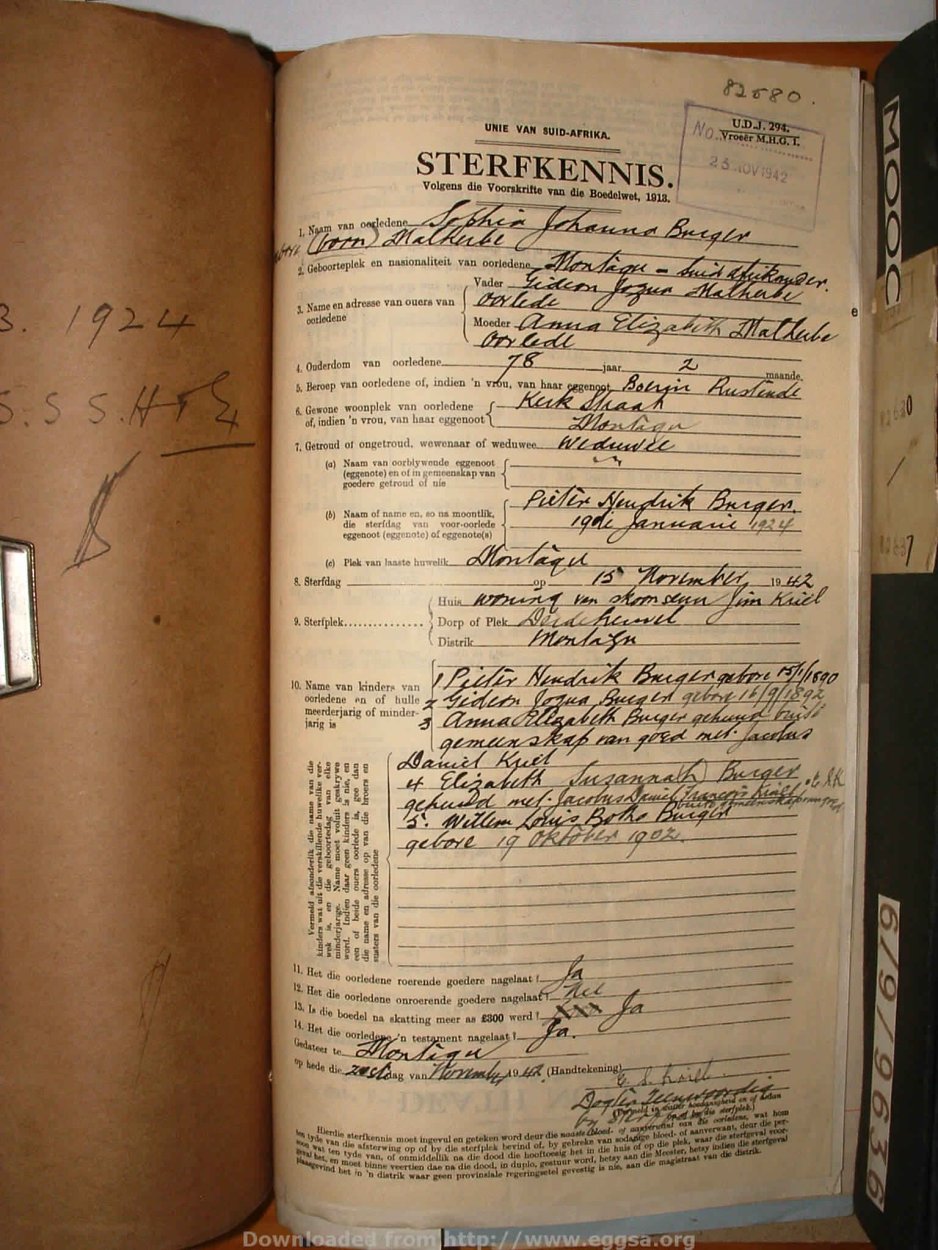 82580.
UNIE VAN SUID-AFRIKA.
U.D.J. 294.
Vroeër M.H.G. I.
No.
25 NOV 1942
STERFKENNIS.
Volgens die Voorskrifte van die Boedelwet, 1913.
1. Naam van oorledene Sophia Johanna Burger
(born) Malherbe
2. Geboorteplek en nasionaliteit van oorledene Montagu - Suid Afrikander.
3. Name en adresse van ouers van oorledene
Vader Gideon Jozua Malherbe
Oorlede
Moeder Anna Elizabeth Malherbe
Oorlede
4. Ouderdom van oorledene 78 jaar 2 maande.
5. Beroep van oorledene of, indien 'n vrou, van haar eggenoot Boerin Rustende
6. Gewone woonplek van oorledene of, indien 'n vrou, van haar eggenoot
Kerk Straat
Montagu
7. Getroud of ongetroud, wewenaar of weduwee Weduwee
(a) Naam van oorblywende eggenoot
(eggenote) en of in gemeenskap van
goedere getroud of nie
(b) Naam of name en, so na moontlik,
die sterfdag van voor-oorlede
eggenoot (eggenote) of eggenote(s)
Pieter Hendrik Burger.
19de Januarie 1924
(c) Plek van laaste huwelik Montagu
8. Sterfdag op 15 November 1942
9. Sterfplek
Huis woning van skoonseun Jim Kriel
Dorp of Plek Derdeheuvel
Distrik Montagu
10. Name van kinders van
oorledene en of hulle
meerderjarig of minder-
jarig is
1 Pieter Hendrik Burger gebore 15/1/1890
2 Gideon Jozua Burger gebore 16/9/1892
3 Anna Elizabeth Burger gehuud buite
gemeenskap van goed met Jacobus
Daniel Kriel
4 Elizabeth Susannah Burger
gehuud met Jacobus Daniel Francois Kriel buite gemeenskap van goed
5. Willem Louis Botha Burger
gebore 19 Oktober 1902.
Vermeld afsonderlik die name van die
kinders wat uit die verskillende huwelike ver-
wek is, en die geboortedag van elke
minderjarige. Name moet voluit geskrywe
word. Indien daar geen kinders is nie, en
een of beide ouers oorlede is, gee dan
die name en adresse op van die broers en
susters van die oorledene
11. Het die oorledene roerende goedere nagelaat? Ja
12. Het die oorledene onroerende goedere nagelaat? Nee
13. Is die boedel na skatting meer as £300 werd? Ja
14. Het die oorledene 'n testament nagelaat? Ja.
Gedateer te Montagu
op hede die 20ste dag van November 1942 (Handtekening) E. S. Kriel
Dogter Teenwoordig
by Sterfte
Hierdie sterfkennis moet ingevul en geteken word deur die naaste bloed- of aanverwant van die oorledene, wat hom
ten tyde van die afsterwing op of by die sterfplek bevind of, by gebreke van sodanige bloed- of aanverwant, deur die per-
soon wat ten tyde van, of onmiddellik na die dood die hooftoesig het in die huis of op die plek, waar die sterfgeval voor-
geval het, en moet binne veertien dae na die dood, in duplo, gestuur word, hetsy aan die Meester, hetsy indien die sterfgeval
plaasgevind het in 'n distrik waar geen provinsiale regeringsetel gevestig is nie, aan die magistraat van die distrik.
3. 1924
S.S.S.
MOOC
6/9/9636
Downloaded from http://www.eggsa.org